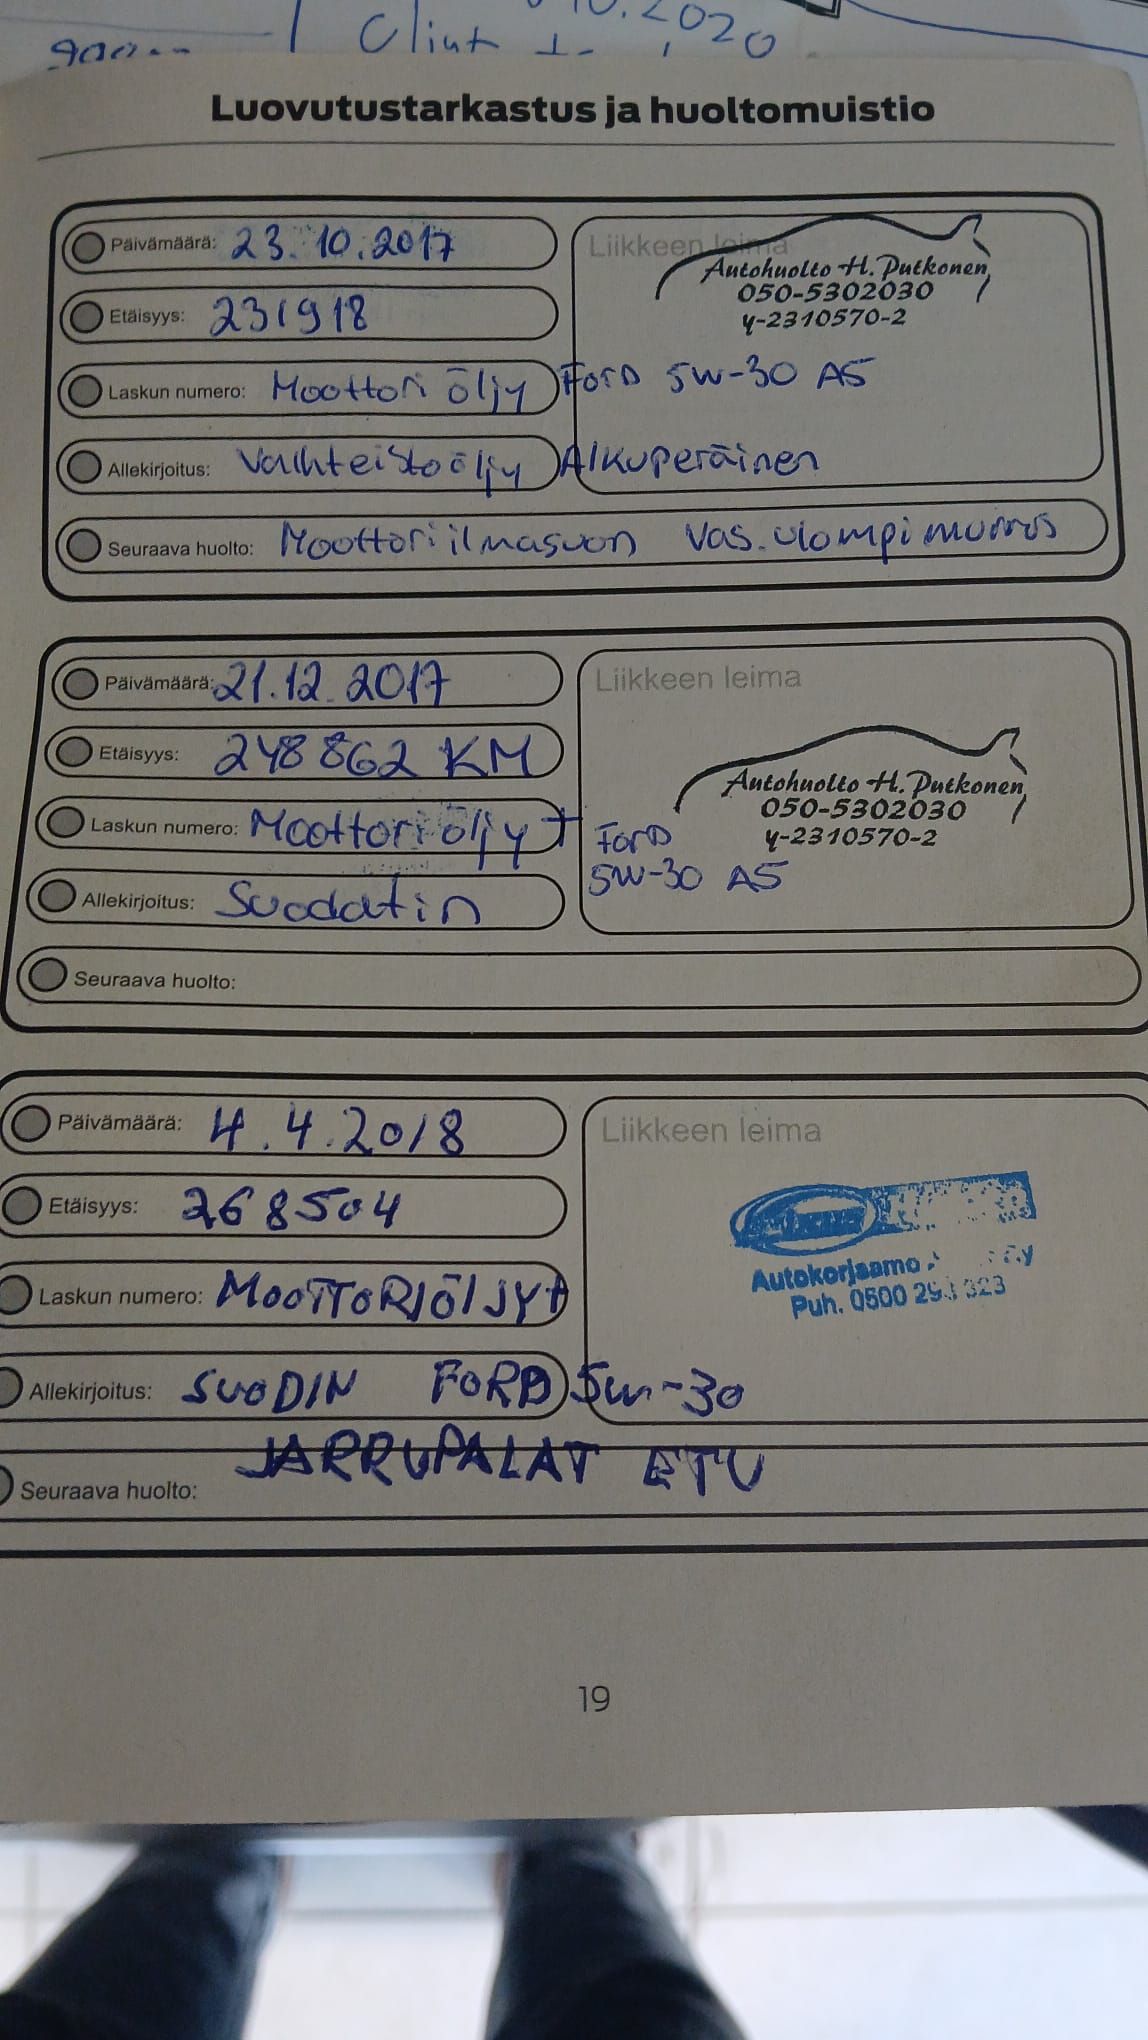 Luovutustarkastus ja huoltomuistio
Päivämäärä: 23.10.2017
Liikkeen leima
Autohuolto H. Putkonen
050-5302030
y-2310570-2
Etäisyys: 231918
Laskun numero: Moottori öljy Ford 5W-30 A5
Allekirjoitus: Vaihteistoöljy Alkuperäinen
Seuraava huolto: Moottori ilmasuon vas. ulompi murros
Päivämäärä: 21.12.2017
Liikkeen leima
Etäisyys: 248 862 KM
Autohuolto H. Putkonen
050-5302030
y-2310570-2
Laskun numero: Moottori öljy + Ford
5W-30 A5
Allekirjoitus: Suodatin
Seuraava huolto:
Päivämäärä: 4.4.2018
Liikkeen leima
Etäisyys: 268504
Autokorjaamo
Puh. 0500
Laskun numero: MOOTTORIÖLJY+
Allekirjoitus: SUODIN FORD 5W-30
JARRUPALAT ETU
Seuraava huolto:
19